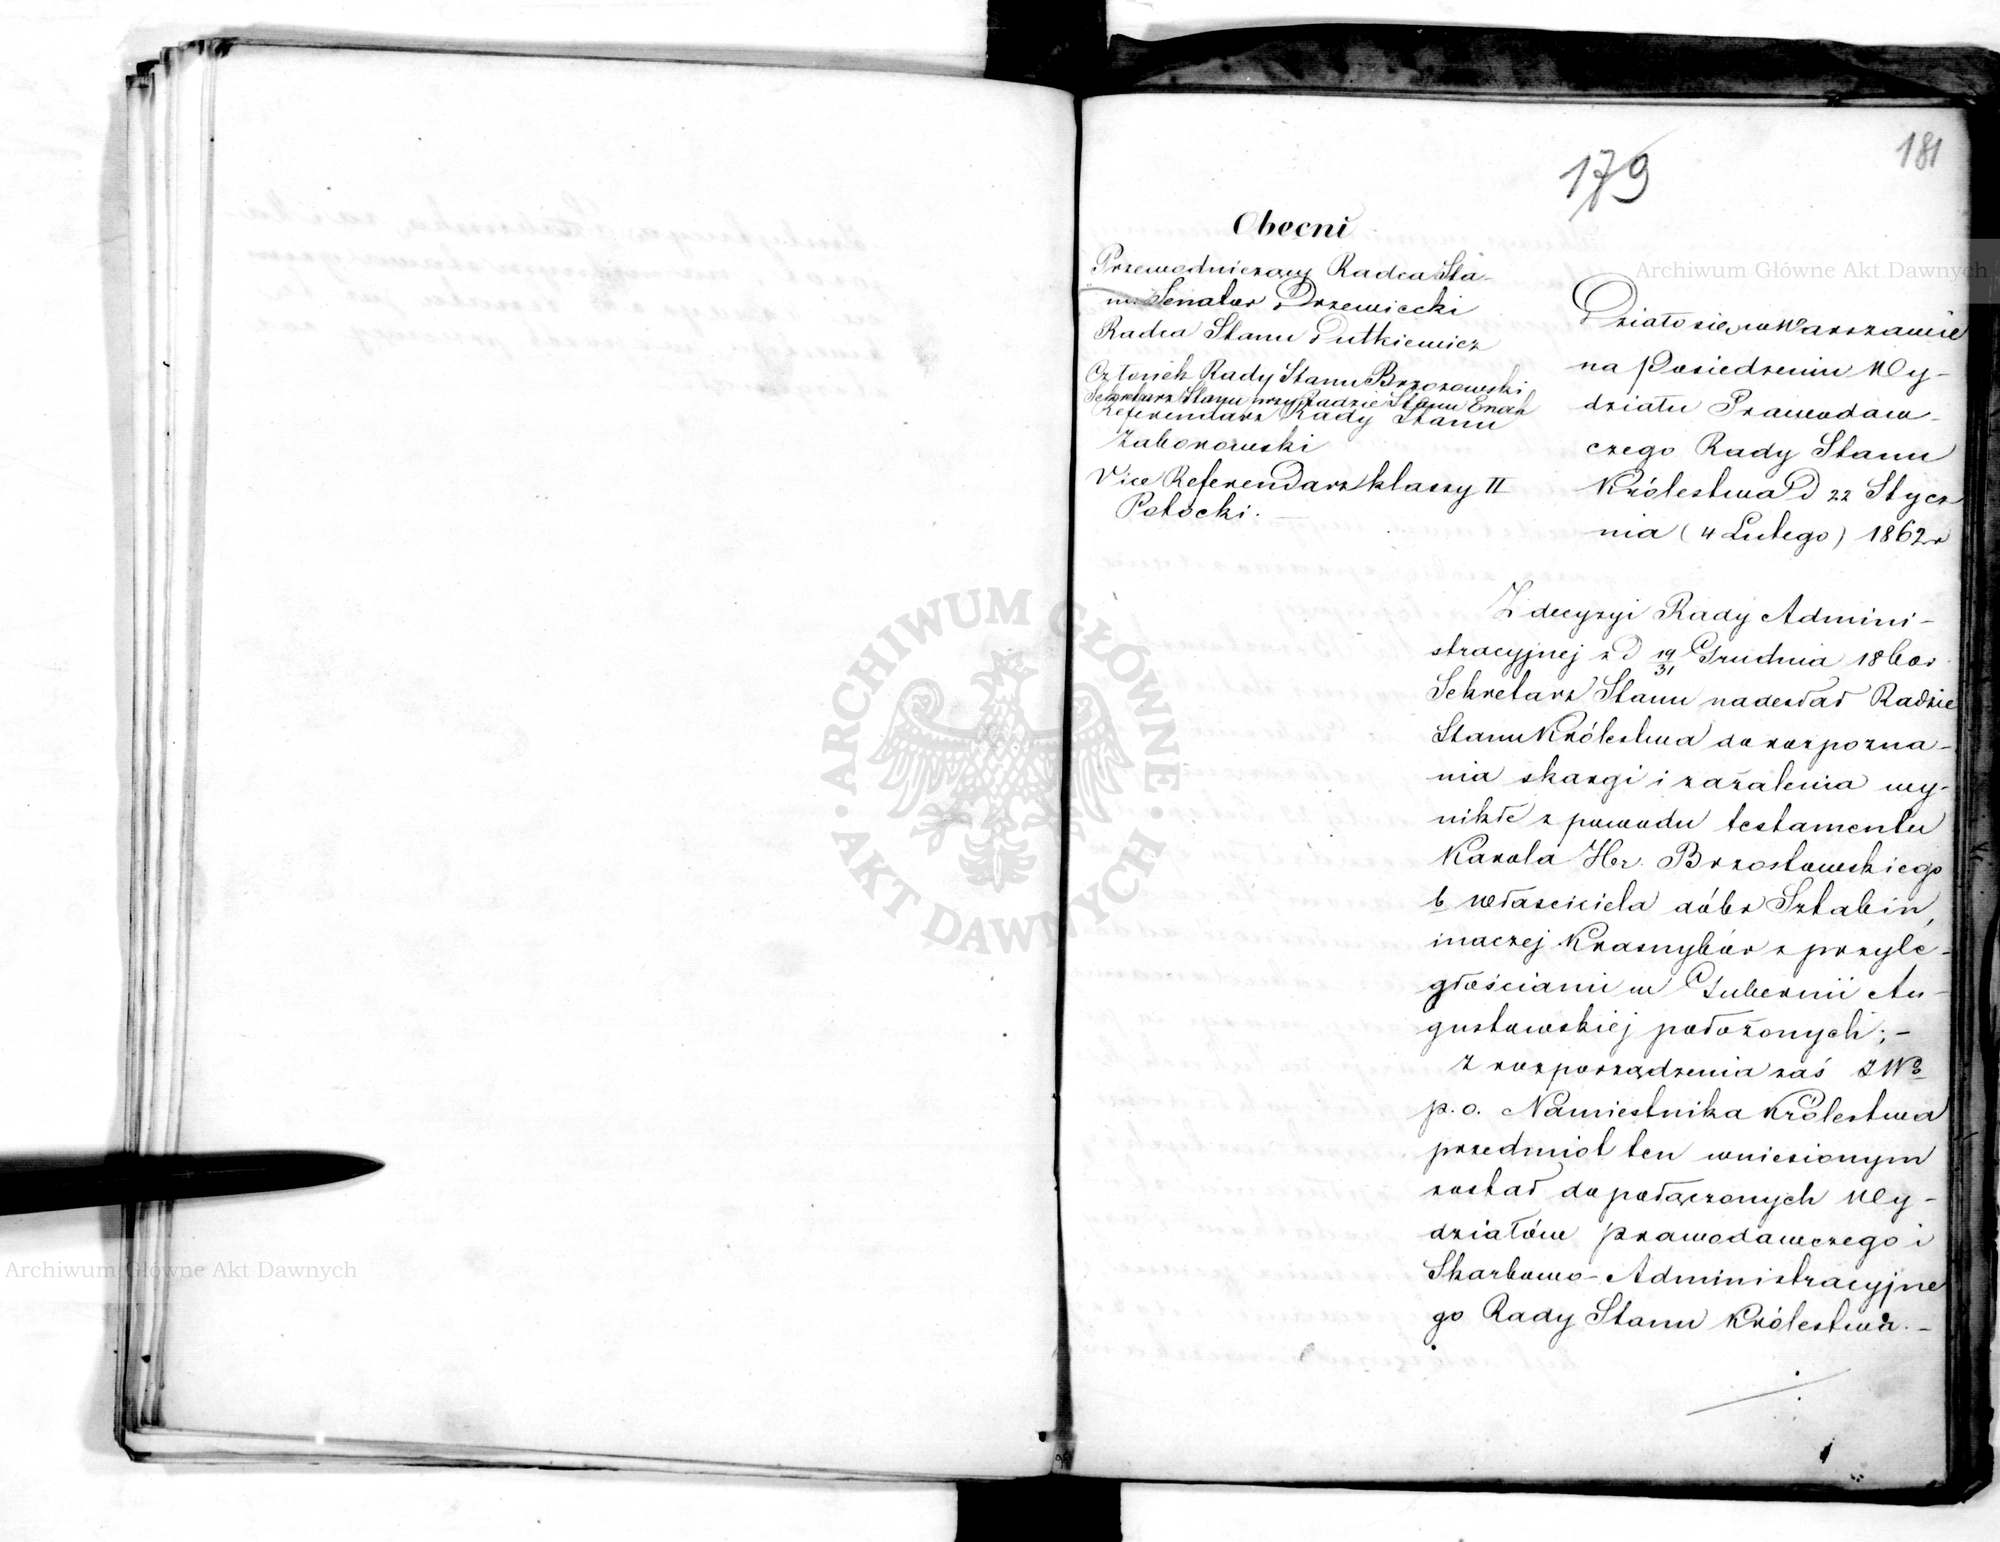 179
181
Obecni
Przewodniczący Radca Sta-
nu Senator Drzewiecki
Radca Stanu Dutkiewicz
Członek Rady Stanu Brzozowski
Sekretarz Stanu przy Radzie Stanu Enoch
Referendarz Rady Stanu
Zaborowski
Vice Referendarz klassy II
Potocki.
Działo się w Warszawie
na Posiedzeniu Wy-
działu Prawodaw-
czego Rady Stanu
Królestwa D 22 Stycz
nia (4 Lutego) 1862 r
Z decyzyi Rady Admini-
stracyjnej z D 19/31 Grudnia 1860 r.
Sekretarz Stanu nadesłał Radzie
Stanu Królestwa do rozpozna-
nia skargi i zażalenia wy-
nikłe z powodu testamentu
Karola Hr. Brzostowskiego
b właściciela dóbr Sztabin,
inaczej Krasnybór z przyle-
głościami w Gubernii Au-
gustowskiej położonych; -
Z rozporządzenia zaś JWo
p. o. Namiestnika Królestwa
przedmiot ten wniesionym
został do połączonych Wy-
działów Prawodawczego i
Skarbowo-Administracyjne
go Rady Stanu Królestwa. -
Archiwum Główne Akt Dawnych
ARCHIWUM GŁÓWNE AKT DAWNYCH
Archiwum Główne Akt Dawnych